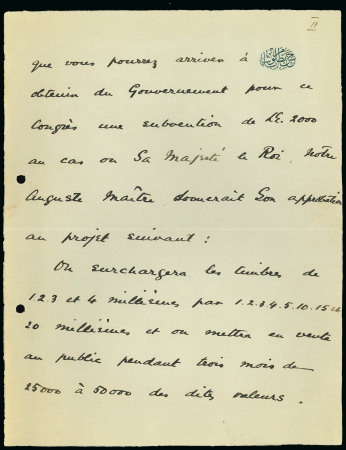 II
que vous pourrez arriver à
obtenir du Gouvernement pour ce
Congrès une subvention de L.E. 2000
au cas où Sa Majesté le Roi, Notre
Auguste Maître, donnerait Son approbation
au projet suivant :
On surchargera les timbres de
1.2.3 et 4 millièmes par 1.2.3.4.5.10.15 et
20 millièmes et on mettra en vente
au public pendant trois mois de
25000 à 50000 des dites valeurs .